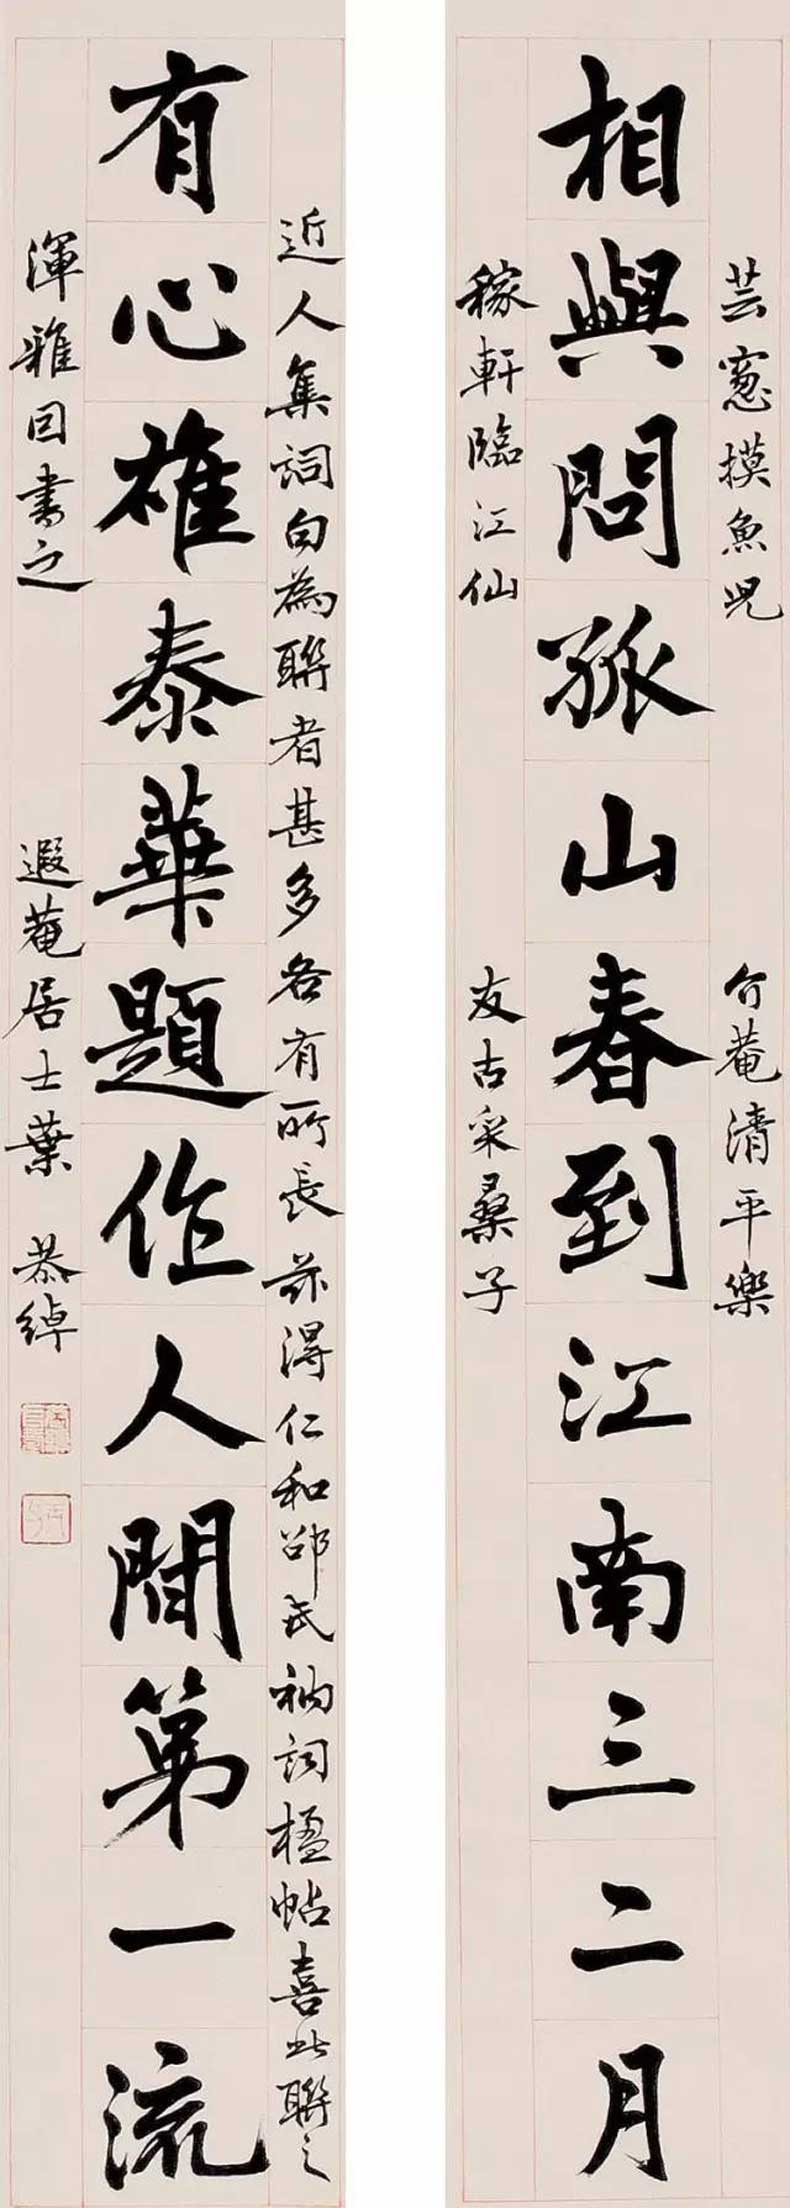 芸窻摸魚兒
介菴清平樂
相與問孤山春到江南三二月
稼軒臨江仙
友古采桑子
近人集詞句為聯者甚多各有所長茲得仁和邵氏衲詞楹帖喜此聯之
有心雄泰華題作人間第一流
渾雅囙書之
遐菴居士葉恭綽